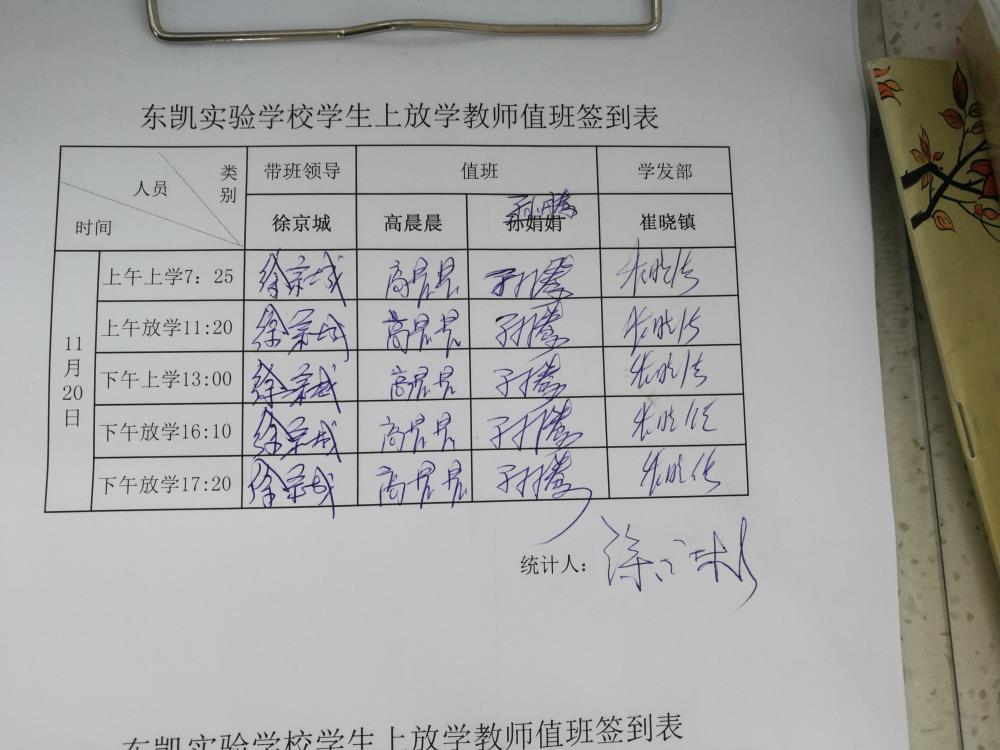 东凯实验学校学生上放学教师值班签到表
类别 人员 时间 带班领导 值班 学发部
孙腾
徐京城 高晨晨 孙娟娟 崔晓镇
11月20日
上午上学7：25 徐京城 高晨晨 孙腾 崔晓镇
上午放学11:20 徐京城 高晨晨 孙腾 崔晓镇
下午上学13:00 徐京城 高晨晨 孙腾 崔晓镇
下午放学16:10 徐京城 高晨晨 孙腾 崔晓镇
下午放学17:20 徐京城 高晨晨 孙腾 崔晓镇
统计人：
东凯实验学校学生上放学教师值班签到表